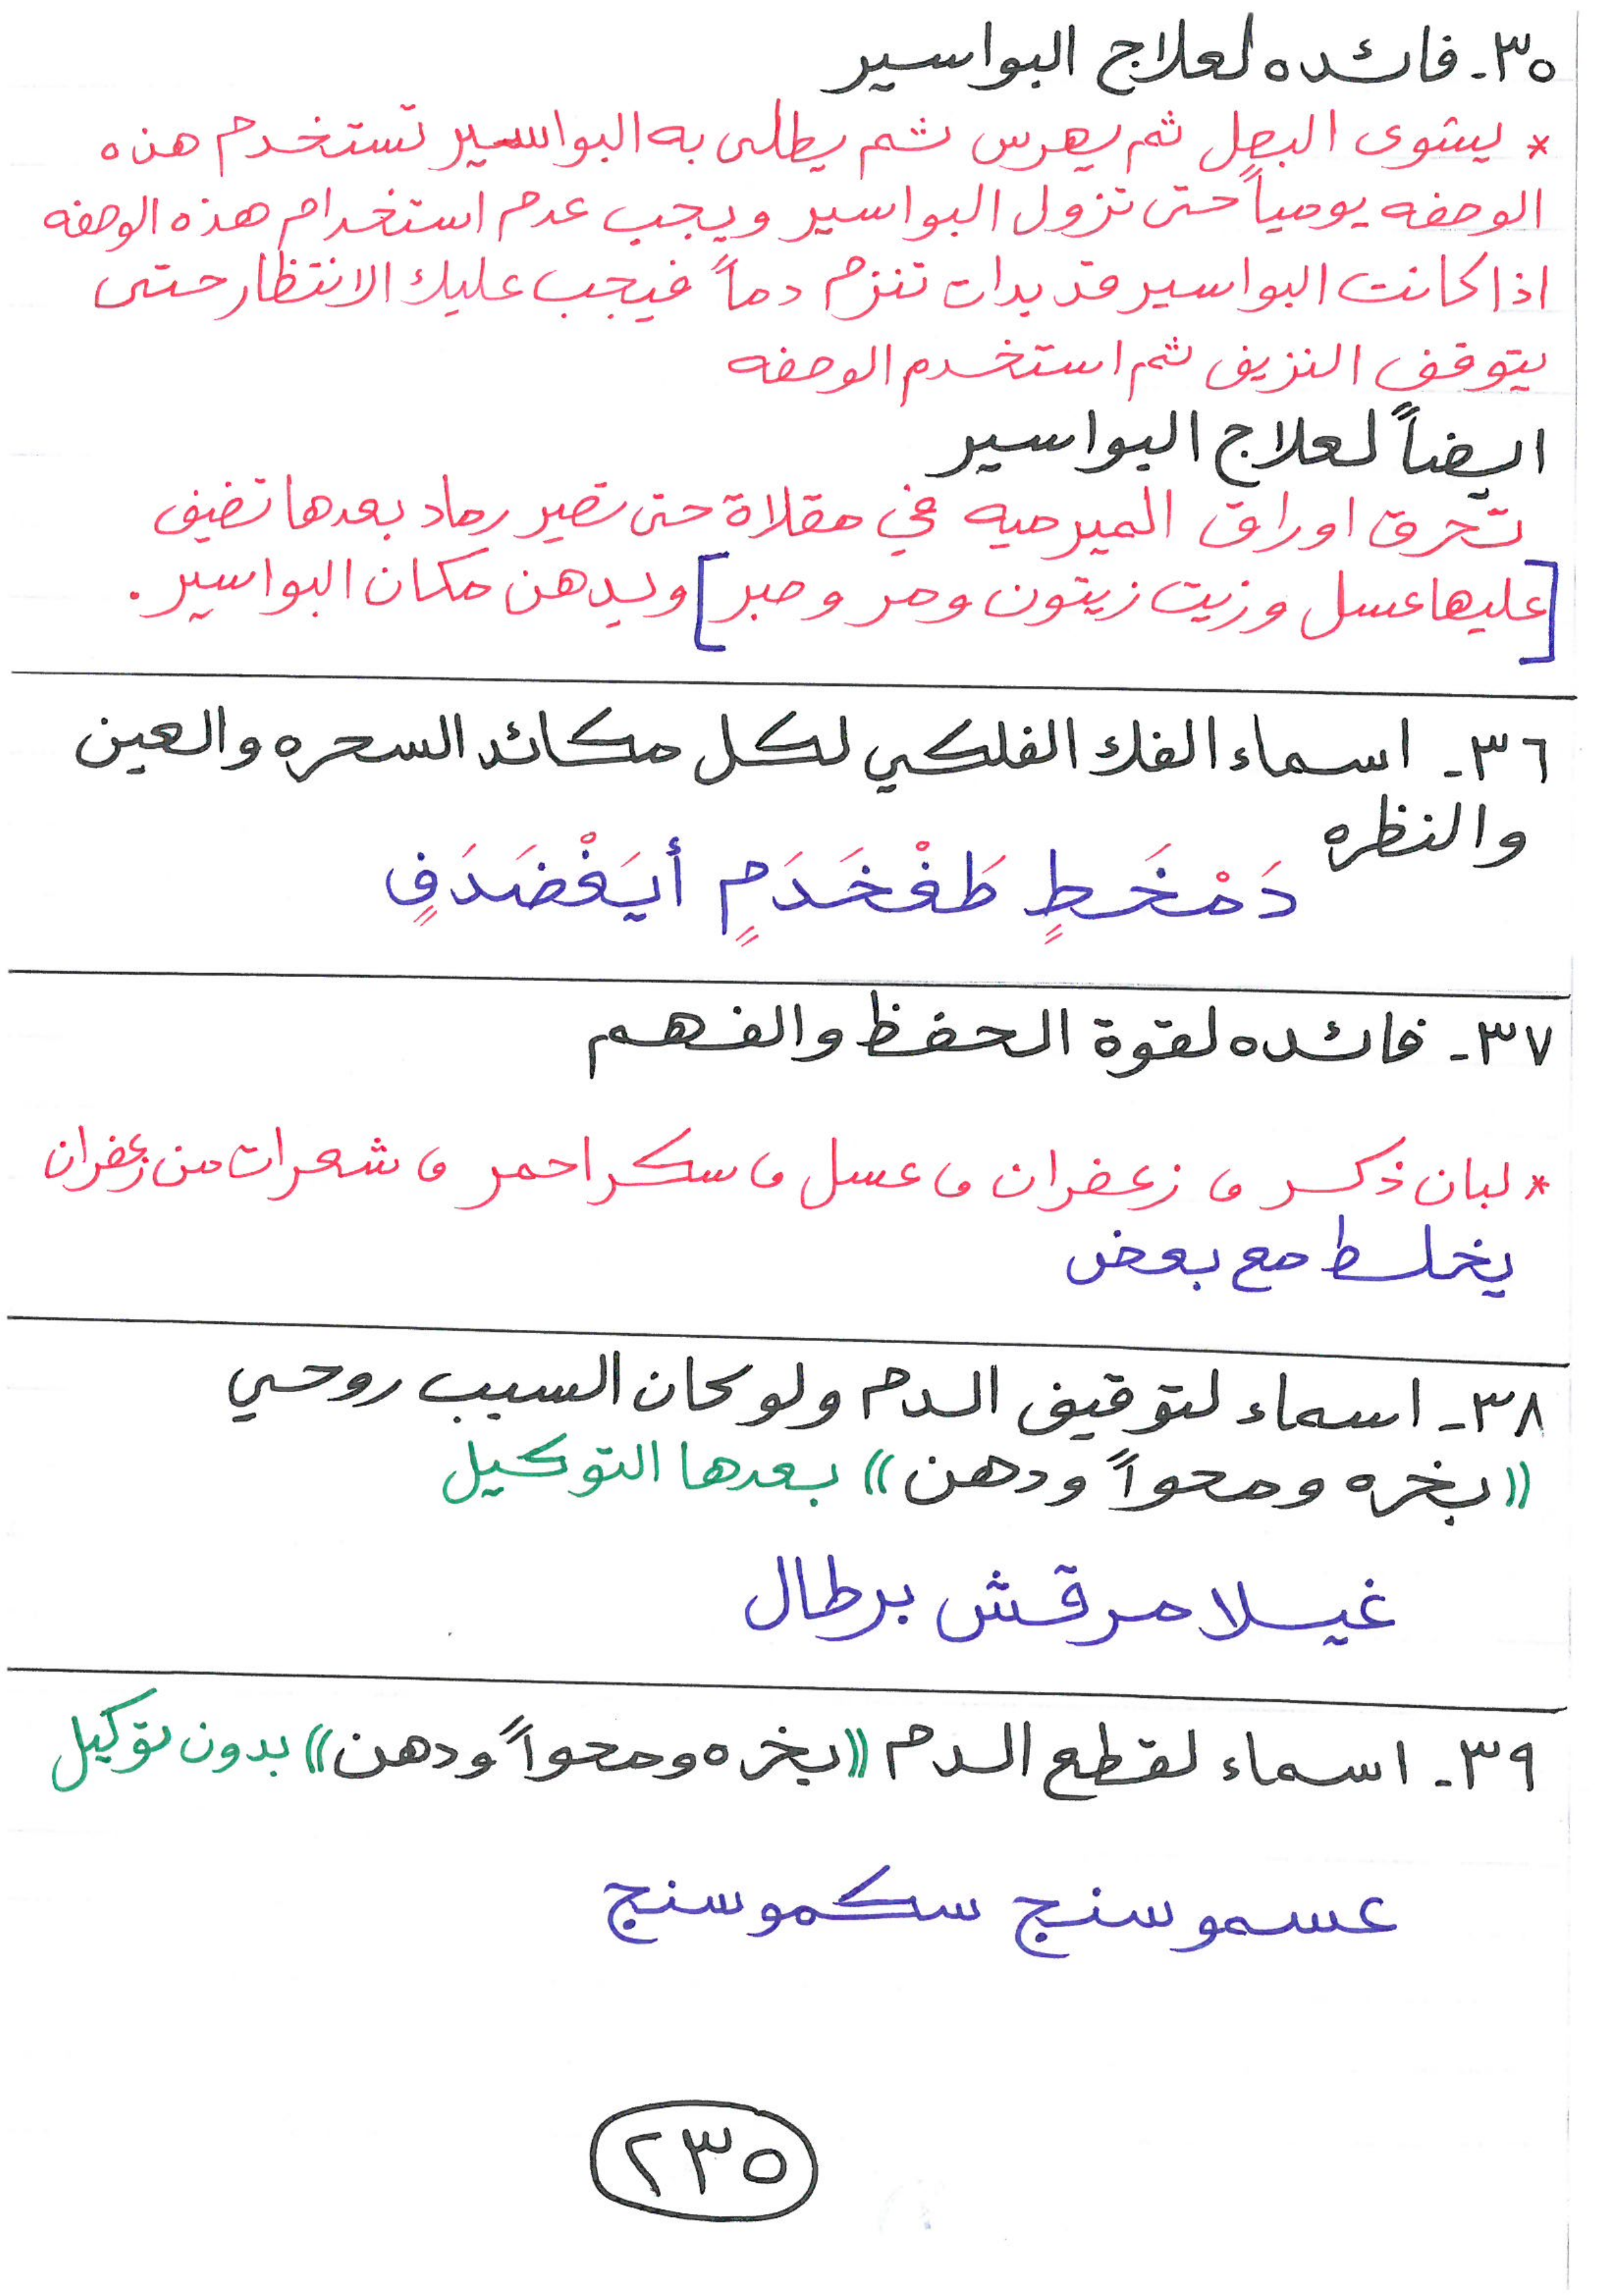 ٣٥- فائده لعلاج البواسير
* يشوى البصل ثم يهرس ثم يطلى به البواسير تستخدم هذه
الوصفه يومياً حتى تزول البواسير ويجب عدم استخدام هذه الوصفه
اذا كانت البواسير قد بدات تنزم دماً فيجب عليك الانتظار حتى
يتوقف النزيف ثم استخدم الوصفه
ايضاً لعلاج البواسير
تحرق اوراق الميرميه في مقلاة حتى تصير رماد بعدها تضيف
[عليها عسل وزيت زيتون ومر وصبر] ويدهن مكان البواسير.
٣٦- اسماء الفك الفلكي لكل مكائد السحره والعين
والنظره
دَمْخَطٍ طَفْخَدَمٍ أيَغْضَدَفٍ
٣٧- فائده لقوة الحفظ والفهم
* لبان ذكر و زعفران و عسل و سكر احمر و شعرات من زعفران
يخلط مع بعض
٣٨- اسماء لتوقيف الدم ولو كان السبب روحي
((بخره ومحواً ودهن)) بعدها التوكيل
غيلا مرقش برطال
٣٩- اسماء لقطع الدم ((بخره ومحواً ودهن)) بدون توكيل
عسموسنج سكموسنج
٢٣٥